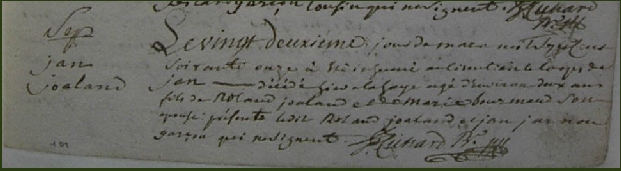 qui ne signent Richard
Sep
jan
joaland
Le vingt deuxième jour de mars mil Sept cent
soixante onze à été inhumé au cimetière le corps de
jan décédé hier agé d'environ deux ans
fils de Roland joaland et de Marie bourmaud Son
epouse présents ledit Roland joaland et jan
garçon qui ne signent Richard